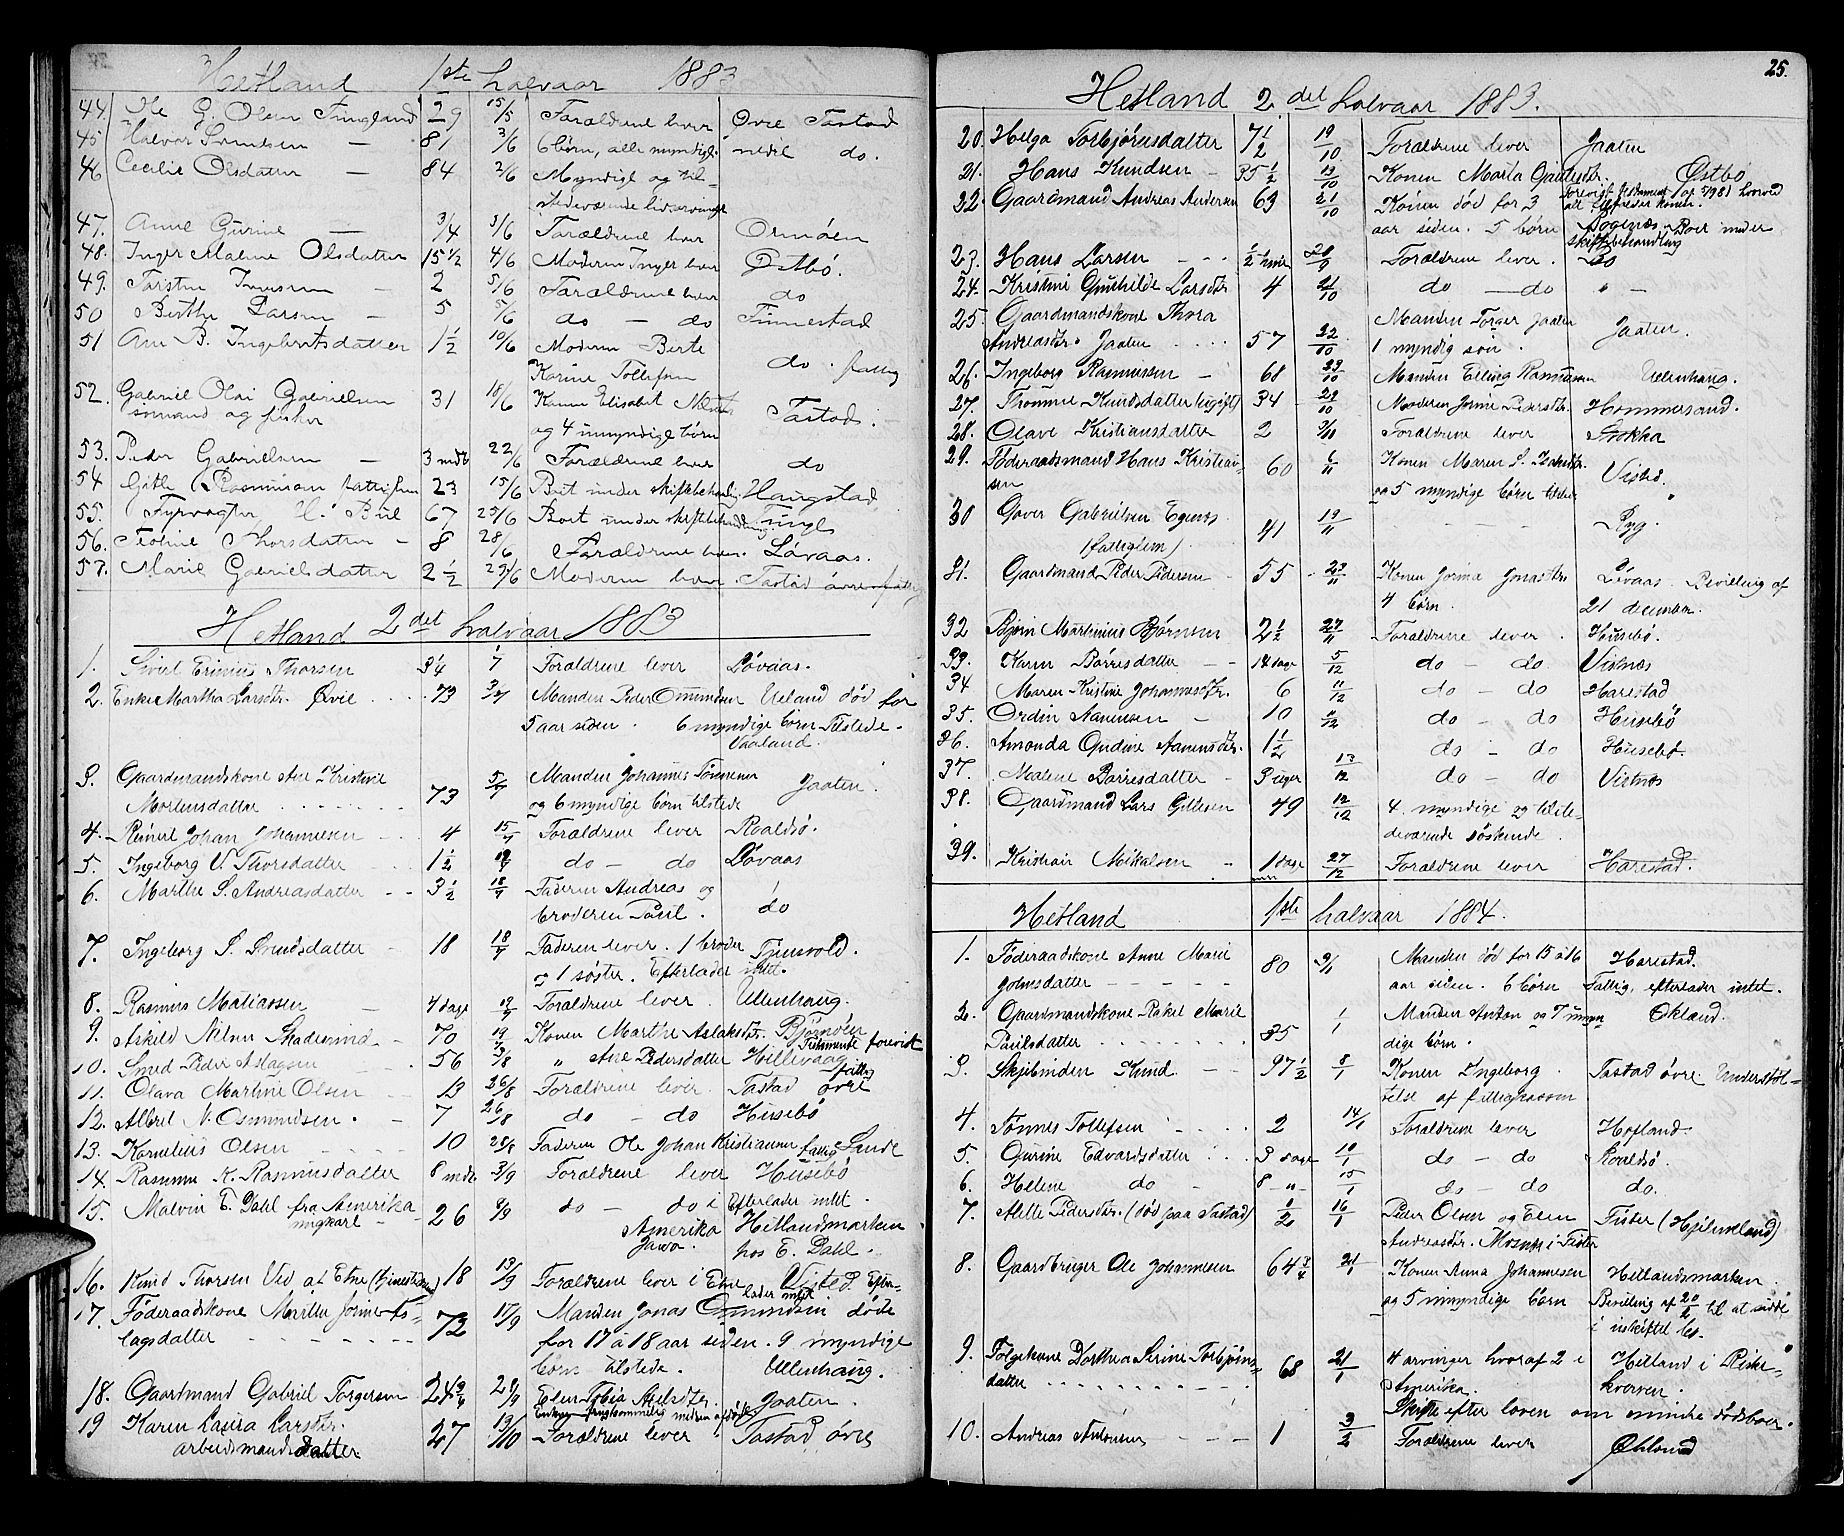 Hetland 1ste halvaar 1883
44. Ole G. Olsen Tungland 29 15/5 Forældrene lever Øvre Tastad
45 Halvor 81 3/6 6 børn, alle myndige nedre do.
46 Cecilie Olsdatter — 84 2/6 Myndige og til-
stedeværende livsarvinger
47. Anne Gurine — 3/4 3/6 Forældrene lever Ormøen
48. Inger Malene Olsdatter 15 1/2 4/6 Moderen Inger lever Østbø.
49. Torsten — 2 5/6 Forældrene lever do
50 Berthe Larsen — 5 5/6 do — do Finnestad
51 Ane B. Ingebretsdatter 1 1/2 10/6 Moderen Berte
Karine Tollefsen do. fattig
52. Gabriel Olai Gabrielsen 31 18/6 Konen Elisabet
sömand og fisker og 4 umyndige börn Tastad.
53. Peder Gabrielsen — 3 mdr 22/6 Forældrene lever do
54 Gitle Rasmussen fattiglem 23 15/6 Boet under skiftebehandling Haugstad
55. Fyrvogter H. Buil 67 25/6 Boet under skiftebehandling Tunge
56. Thorsdatter — 8 28/6 Forældrene lever. Løvaas.
57. Marie Gabrielsdatter 2 1/2 29/6 Moderen lever. Tastad övre fattig
Hetland 2det halvaar 1883
1. Sivert Thorsen 3/4 1/7 Forældrene lever Løvaas.
2. Enke Martha Larsdtr. Øvie 73 3/7 Manden Peder Omundsen Ueland död for
5 aar siden. 6 myndige börn Tilstede.
Vaaland.
3. Gaardmandskone Ane Kristine 5/7 Manden Johannes Tönnesen Jaaten
Mortensdatter 73 og 6 myndige börn tilstede
4. Reinert Johan Johannesen 4 15/7 Forældrene lever Roaldsö.
5. Ingeborg V. Thorsdatter 1 1/2 19/7 do — do Løvaas
6. Marthe S. Andreasdatter 3 1/2 18/7 Faderen Andreas og
broderen Paul. do
7. Ingeborg S. datter — 18 18/7 Faderen lever. 1 broder Tjensvold.
og 1 söster. Efterlader intet.
8. Rasmus Matiassen 4 dage 19/7 Forældrene lever Ullenhaug.
9. Askild Nelsen 70 19/7 Konen Marthe Aslaksdtr. Bjørnøen
Testamente forevist
10. Smed Peder Aslagsen 56 3/8 " Ane Pedersdatter Hillevaag
fattig
11. Olava Martine Olsen 13 26/8 Forældrene lever Tastad övre
12. Albert N. Osmundsen 7 26/8 do — do Husebö
13. Kornelius Olsen 10 28/8 Faderen Ole Johan Kristiansen fattig Sande
14. Rasmine K. Rasmusdatter 8 mdr. 3/9 Forældrene lever Husebö
15. Malvin E. Dahl fra Amerika 26 9/9 do — do i Efterlader intet.
ungkarl Amerika Hetlandsmarken
Jowa. hos E. Dahl.
16. Knud Thorsen Vea af Etne (tjenestedreng) 18 13/9 Forældrene lever i Etne Visted Efter-
lader intet
17. Föderaadskone Marthe As- 17/9 Manden Jonas Omundsen döde
lagsdatter 72 for 17 à 18 aar siden. 9 myndige
börn tilstede. Ullenhaug.
18. Gaardmand Gabriel Torgersen 24 3/4 29/9 Elen Tobia Axelsdtr. Jaaten.
19 Karen Laura Larsdtr. 27 13/10 Forældrene lever Tastad övre
arbeidsmandsdatter
25.
Hetland 2.det halvaar 1883.
20. Helga Torbjørnsdatter 7 1/2 19/10 Forældrene lever Jaaten
21. Hans Knudsen 35 1/2 13/10 Konen Marta Østbö
22. Gaardmand Andreas Andersen 63 21/10 Konen död for 3
aar siden. 5 börn Boet under
skiftebehandling
23. Hans Larsen 1/2 time 28/9 Forældrene lever. Bö
24. Kristine Gunhilde Larsdtr 4 21/10 do — do " —
25. Gaardmandskone Thora Manden Torger Jaaten
Andreasdtr. Jaaten 57 22/10 1 myndig sön. Jaaten.
26. Ingeborg Rasmussen — 68 23/10 Manden Elling Rasmussen Ullenhaug.
27. Tromine Knudsdatter (ugift) 34 29/10 Moderen Jorine Pedersdtr. Hommersand.
28. Olave Kristiansdatter 2 3/11 Forældrene lever Stokka
29. Föderaadsmand Hans Kristian- 60 6/11 Konen Maren S.
sen og 5 myndige börn tilstede Visted.
30 Gover Gabrielsen Egenæs 41 19/11 — — — Ryg.
(fattiglem).
31. Gaardmand Peder Pedersen 55 23/11 Konen Jorina Jonasdtr. Løvaas. Bevilling af
4 börn. 21 december.
32 Björn Martinius Björnsen 2 1/2 27/11 Forældrene lever. Husebö.
33. Karen Börresdatter — 14 dage 5/12 do — do Vistnæs
34 Maren Kristine Johannesdtr. 6 11/12 do — do Harestad
35. Ordin Aanensen — 10 11/12 do — do Husebö
36. Amanda Gudine Aanensdtr. 1 1/2 do — do Husebö.
37. Malene Börresdatter — 3 uger 13/12 do — do Vistnæs
38. Gaardmand Lars Gittesen 49 12/12 4 myndige og tilste-
deværende söskende.
39. Kristian Mikalsen 1 dage 27/12 Forældrene lever Harestad.
Hetland 1ste halvaar 1884.
1. Föderaadskone Anne Marie 80 9/1 Manden död for 15 à 16 Harestad.
Johnsdatter aar siden. 6 börn Fattig. efterlader intet.
2. Gaardmandskone Rakel Marie 1/1 Manden Anton og 7 umyn Økland.
Paulsdatter 35 dige börn.
3. Skibinden Knud 37 1/2 8/1 Konen Ingeborg. Tastad övre Understöt-
telse af fattigkassen
4. Tönnes Tollefsen 2 14/1 Forældrene lever Hofland.
5. Gurine Edvardsdatter 3 dage 10/1 do — do Roaldsö.
6. Helene do — 8 — " — 15/1 do — do do.
7. Alette Pedersdtr. (död paa Tastad) 1/2 16/1 Peder Olsen og Elen Fister (Hjelmeland)
Andreasdtr. i Fister
8. Gaardbruger Ole Johannesen 64 3/4 21/1 Konen Anna Johannesen Hetlandsmarken.
og 5 umyndige börn Bevilling af 20/2 til at sidde
i uskiftet bo.
9. Fölgekone Dorthea Serine Torbjörns- 68 21/1 4 arvinger hvoraf 2 i Hetland i Riske-
datter Amerika. kverven.
Skifte efter loven om mindre dödsboer.
10. Andreas Antonsen 1 3/2 Forældrene lever Økland